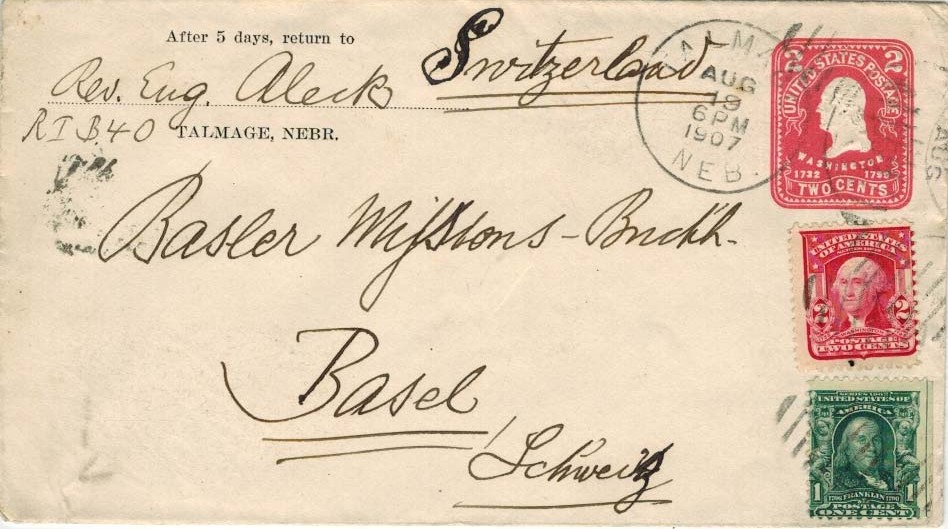 After 5 days, return to
Rev. Eug. Aleck
R I B 40 TALMAGE, NEBR.
Switzerland
TALMAGE
AUG
19
6 PM
1907
NEB.
2 2
UNITED STATES POSTAGE
WASHINGTON
1732 1799
TWO CENTS
AUG
Basler Missions-Buchh.
Basel
Schweiz
UNITED STATES
OF AMERICA
2 2
WASHINGTON
POSTAGE
TWO CENTS
SERIES 1902
UNITED STATES OF
AMERICA
1706 FRANKLIN 1790
1 1
POSTAGE
ONE CENT